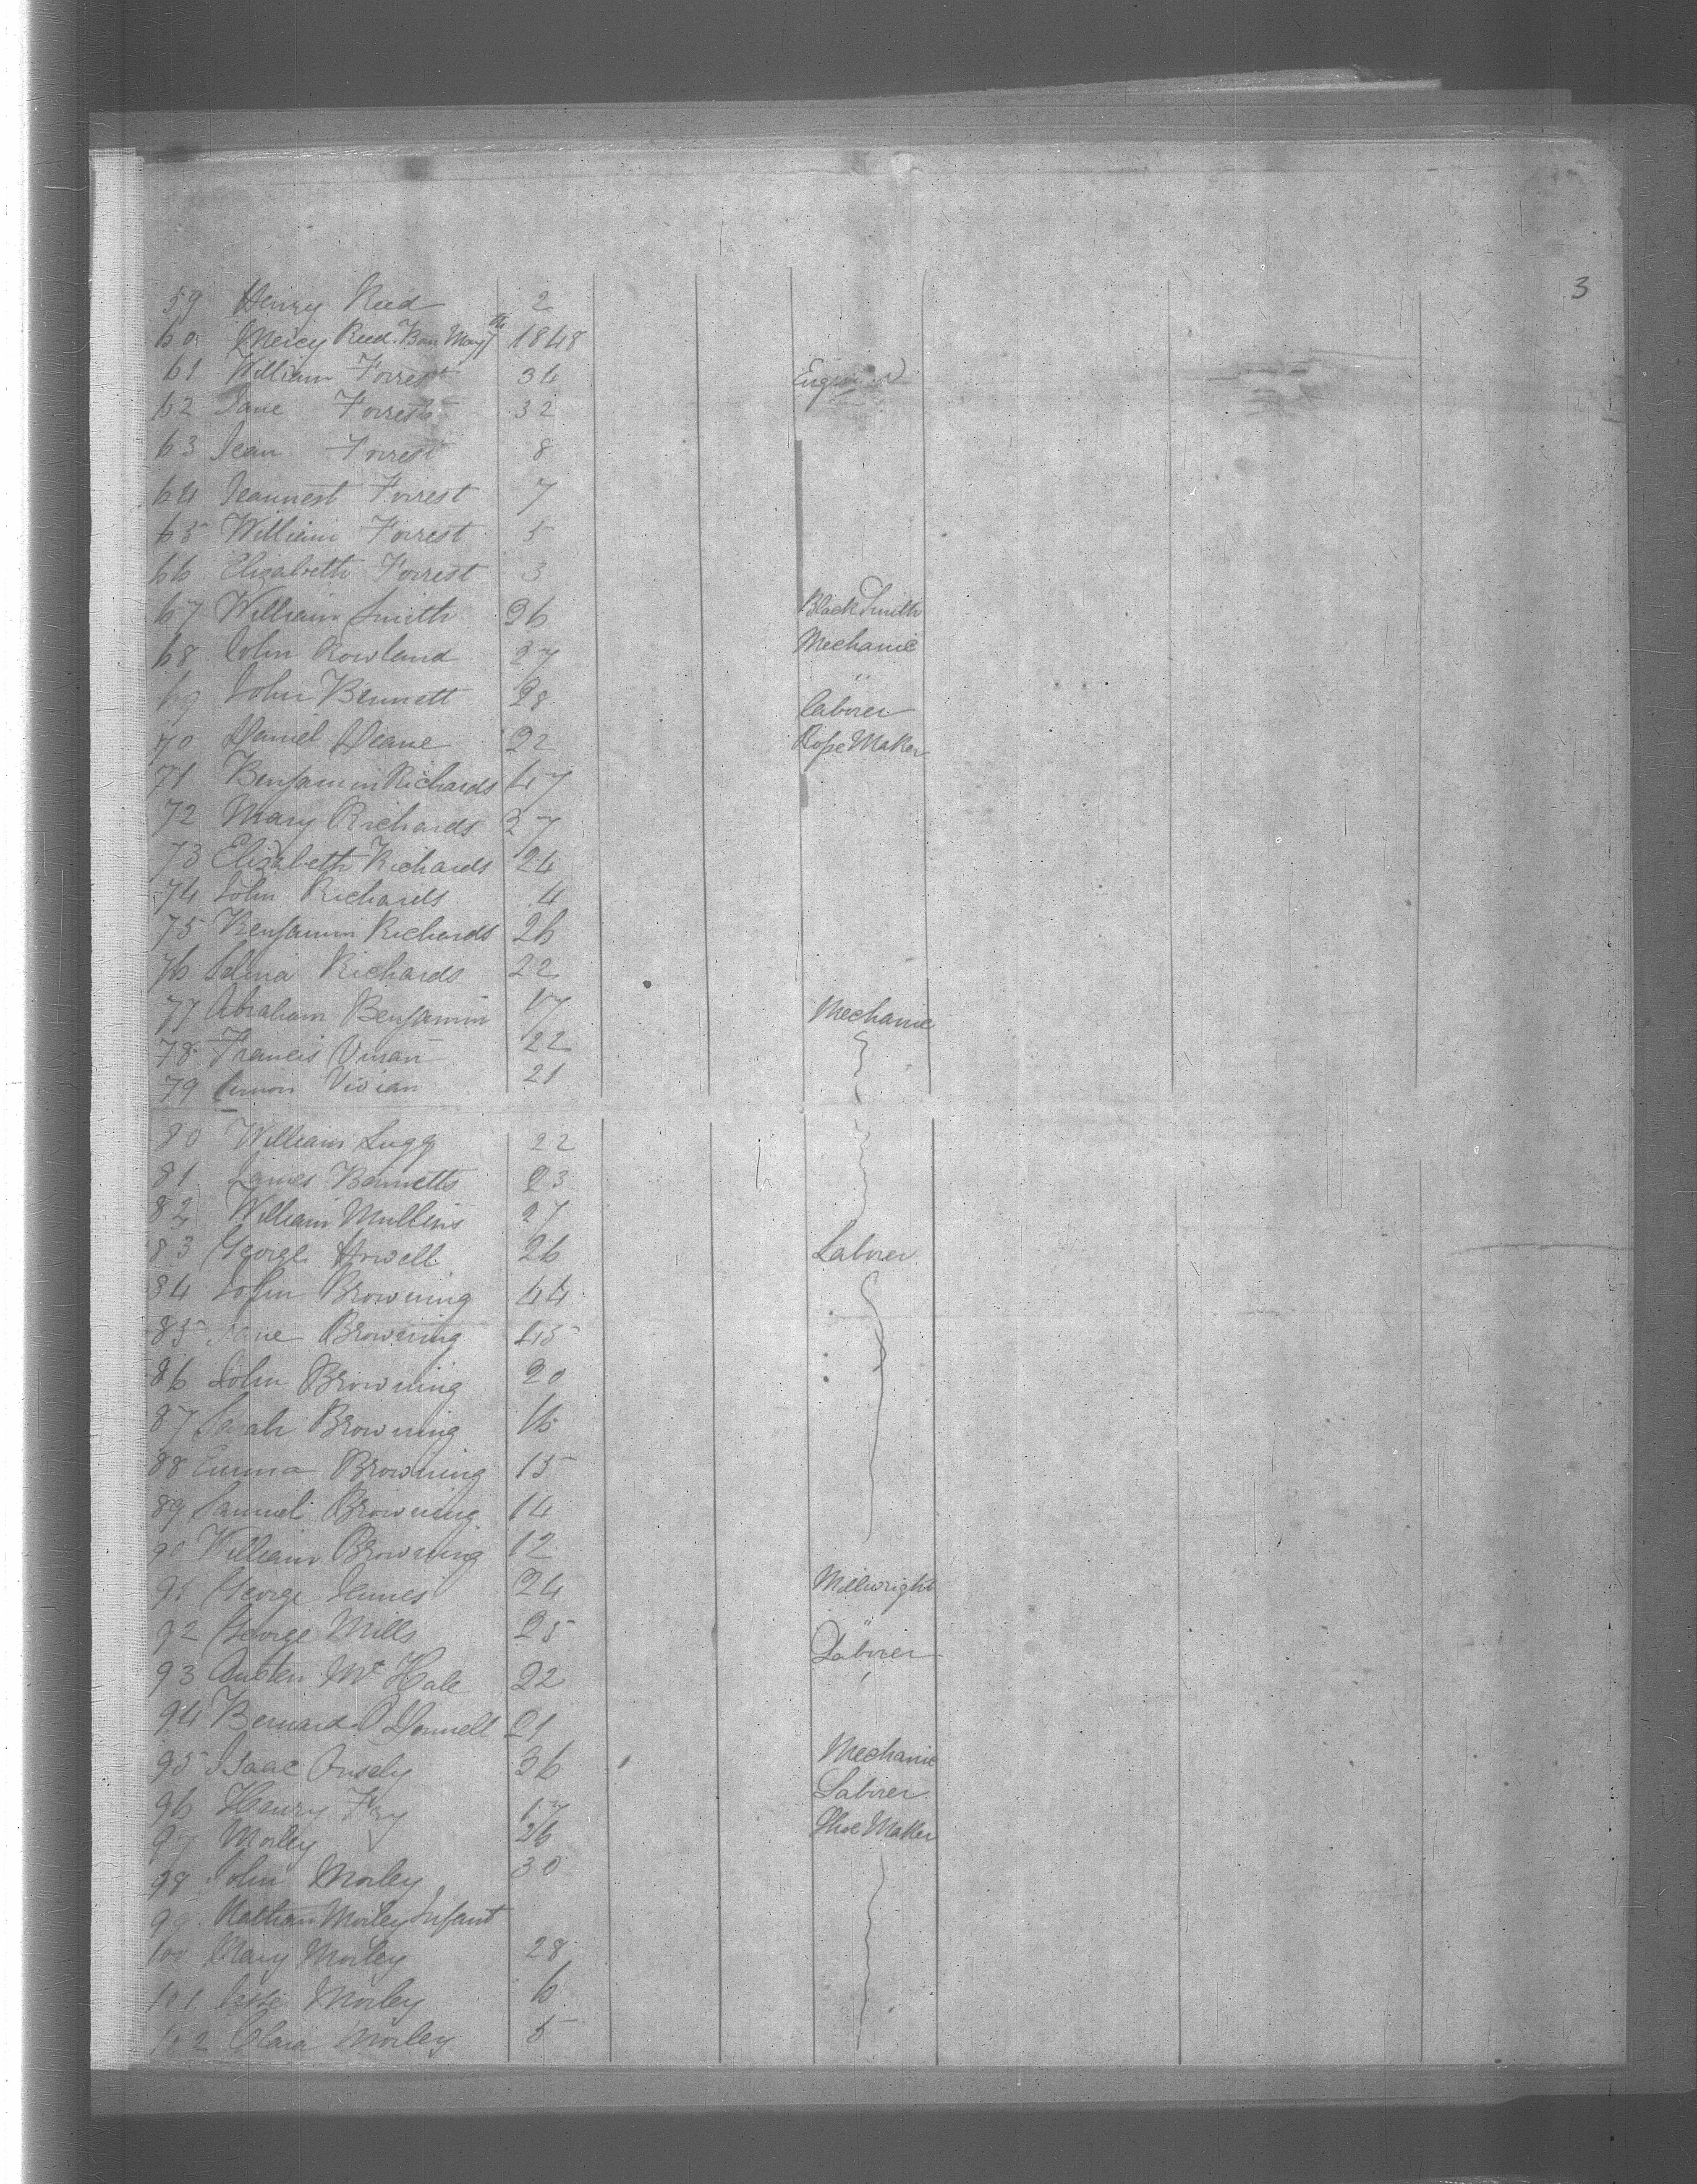 3
59 Henry Reed 2
60 Mercy Reed. Born May 7th 1848
61 William Forrest 34
62 Jane Forrest 32
63 Jean Forrest 8
64 Jeannest Forrest 7
65 William Forrest 5
66 Elizabeth Forrest 3
67 William Smith 26 Black Smith
68 John Rowland 27 Mechanic
69 John Bennett 28 "
70 Daniel Deane 22 Laborer
71 Benjamin Richards 47 Rope Maker
72 Mary Richards 27
73 Elizabeth Richards 24
74 John Richards 4
75 Benjamin Richards 26
76 Selina Richards 22
77 Abraham Benjamin 17 Mechanic
78 Francis Vivian 22
79 Simon Vivian 21
80 William Lugg 22
81 James Bennetts 23
82 William Mullins 27
83 George Howell 26 Laborer
84 John Browning 44
85 Jane Browning 45
86 John Browning 20
87 Sarah Browning 16
88 Emma Browning 15
89 Samuel Browning 14
90 William Browning 12
91 George James 24 Millwright
92 George Mills 25 "
93 Austen Mc Hale 22 Laborer
94 Bernard O Donnell 21
95 Isaac 36 Mechanic
96 Henry Fry 17 Laborer
97 Morley 26 Shoe Maker
98 John Morley 30
99 Nathan Morley Infant
100 Mary Morley 28
101 Jesse Morley 6
102 Clara Morley 5